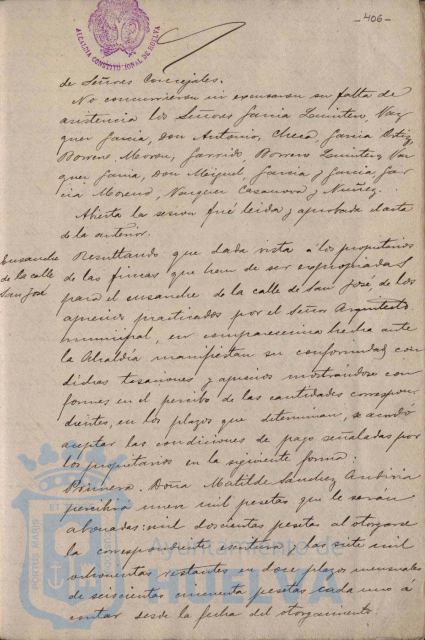 -406-
ALCALDIA CONSTITUCIONAL DE HUELVA
de Señores Concejales.
No concurrieron ni excusaron su falta de
asistencia los Señores Garcia Quintero, Vaz
quez Garcia, Don Antonio, Checa, Garcia Ortiz,
Borrero, Moron, Garrido, Borrero Quintero, Vaz
quez Garcia, Don Miguel, Garcia y Garcia, Gar
cia Moreno, Vazquez Casanova y Nuñez.
Abierta la sesion fué leida y aprobada el acta
de la anterior.
Ensanche
de la calle
San José
Resultando que dada vista a los propietarios
de las fincas que han de ser expropiadas
para el ensanche de la calle de San José, de los
aprecios practicados por el Señor Arquitecto
municipal, en comparecencia hecha ante
la Alcaldia manifiestan su conformidad con
dichas tasaciones y aprecios mostrandose con
formes en el percibo de las cantidades correspon
dientes, en los plazos que determinan, se acordó
aceptar las condiciones de pago señaladas por
los propietarios en la siguiente forma:
Primera. Doña Matilde Sanchez
percibirá nueve mil pesetas que le seran
abonadas: mil doscientas pesetas al otorgarse
la correspondiente escritura y las siete mil
ochocientas restantes en doce plazos mensuales
de seiscientas cincuenta pesetas cada uno á
contar desde la fecha del otorgamiento.
PORTUS MARIS
Ayuntamiento de
HUELVA